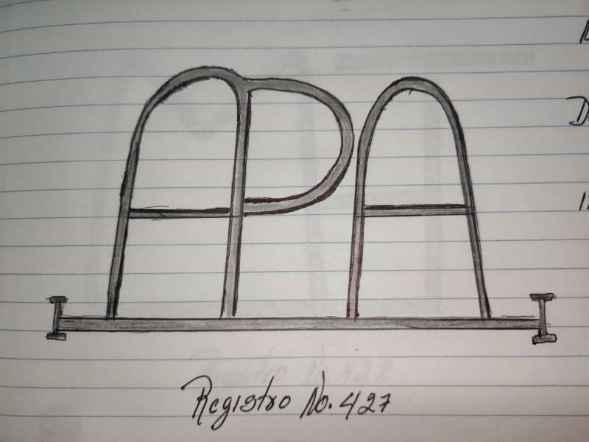 APA
Registro No. 427